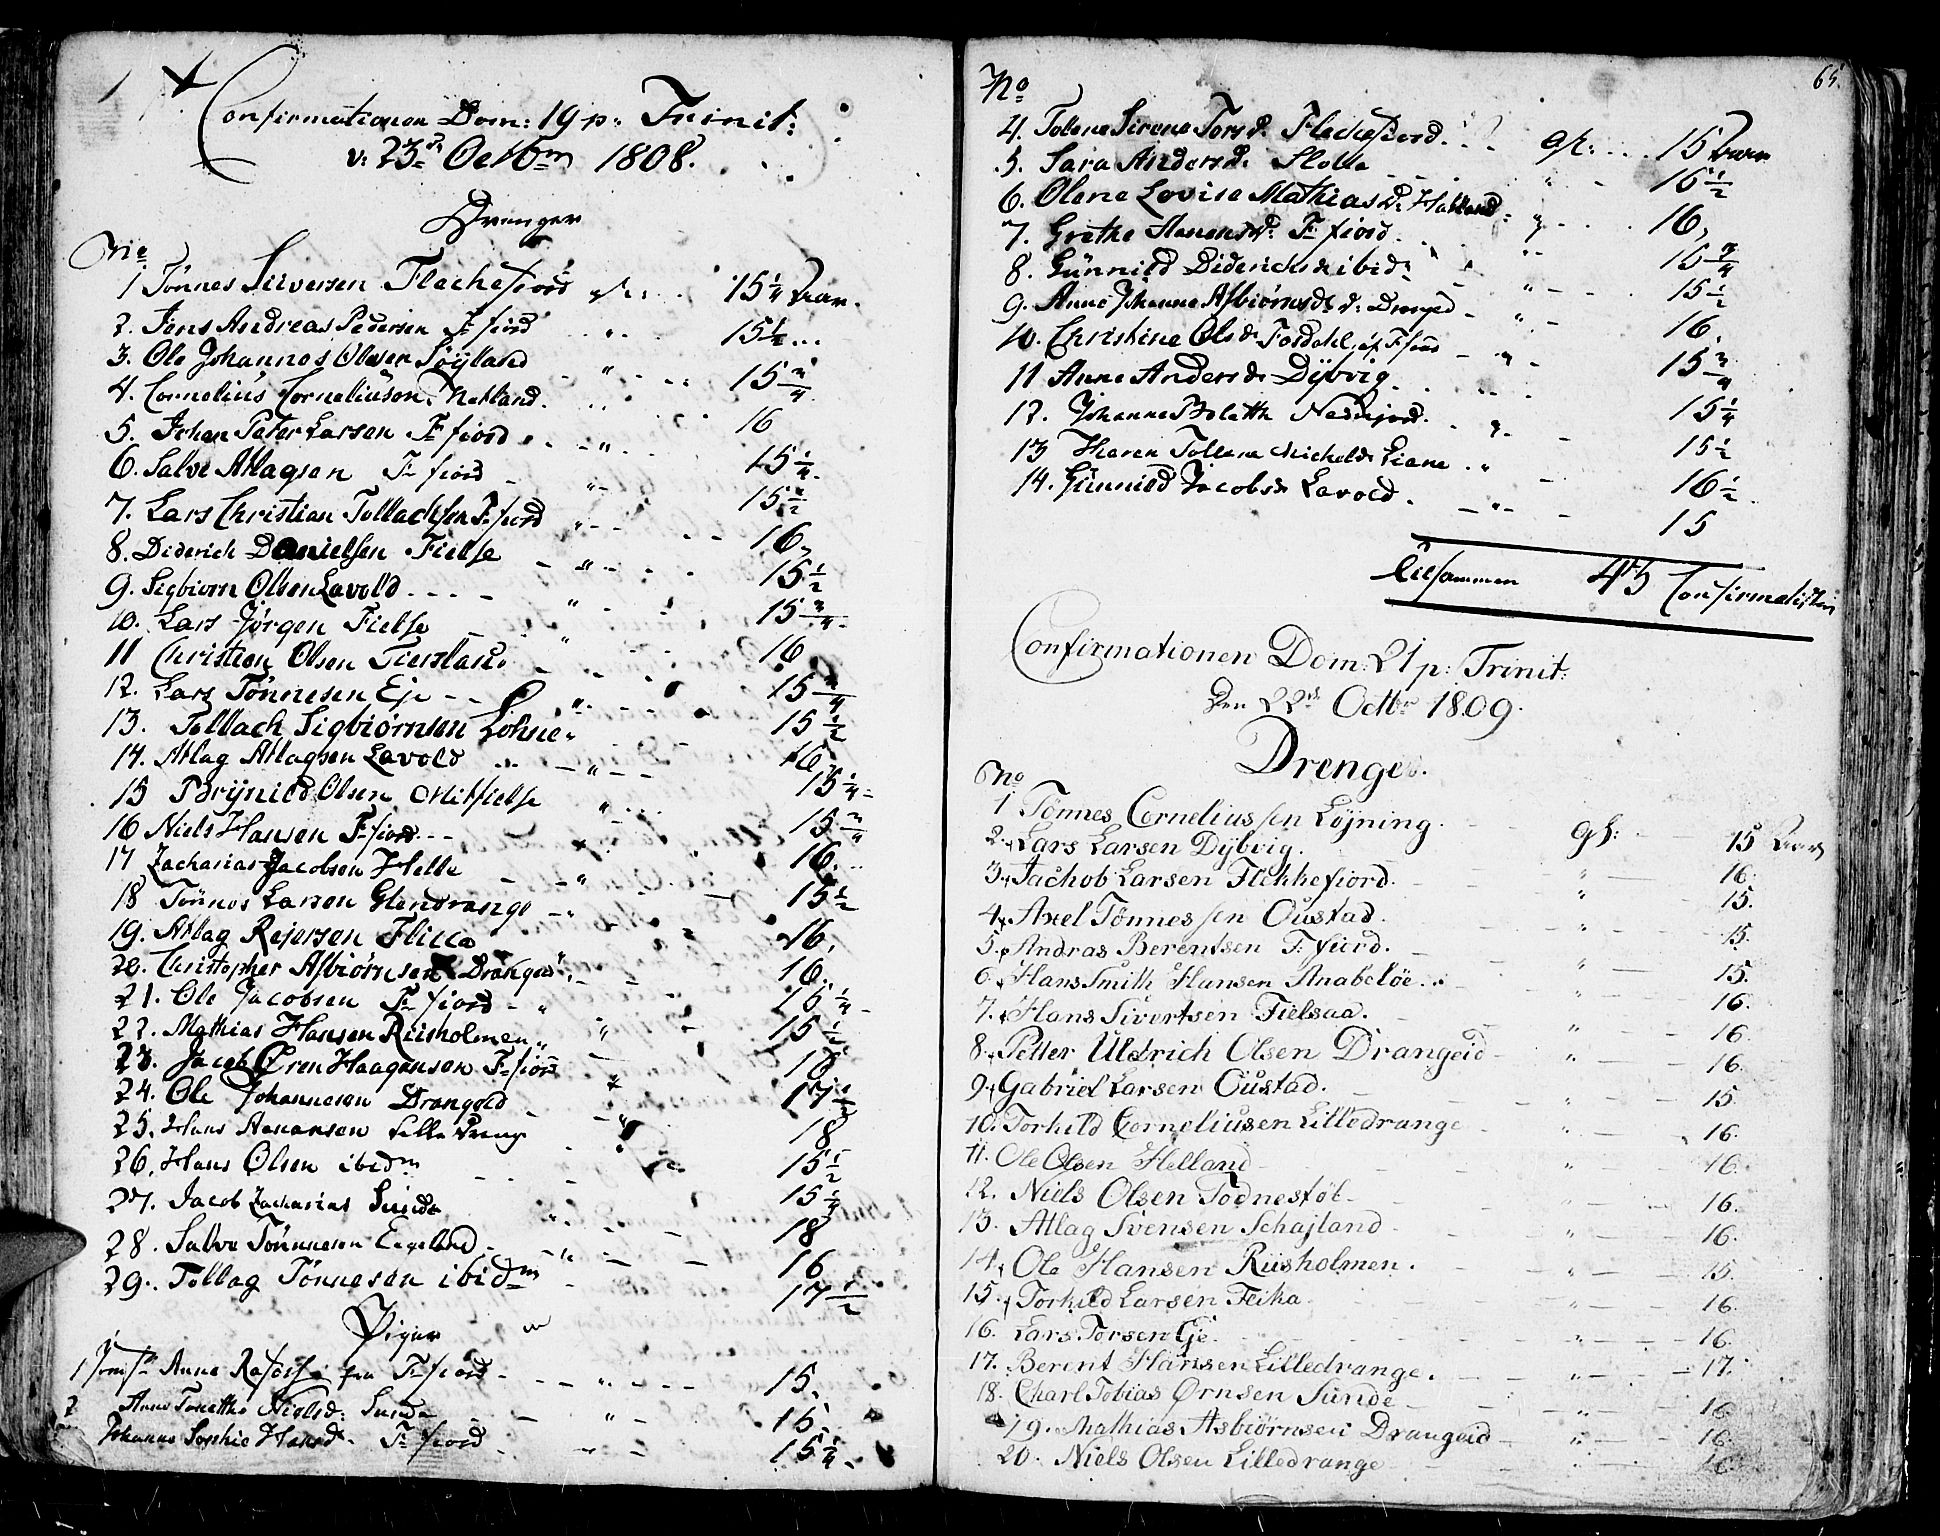 Confirmationen Dom: 19 p: Trinit:
d: 23de Octbr 1808.
Drenger
No
1 Tönnes Siversen Flechefiord gl: 15 1/4 Aar.
2. Jens Andreas Pedersen F: fiord " 15 1/2
3. Ole Johannes Olsen Söyland " 15 3/4
4. Cornelius Corneliusen Netland. " 16
5. Johan Peter Larsen F: fiord " 15 1/4
6. Salve Atlagsen F: fiord " 15 1/2
7. Lars Christian Tollachsen F: fiord " 16
8. Diderich Danielsen Fielse " 15 1/2
9. Sigbiorn Olsen Lavold " 15 3/4
10. Lars Jörgen Fielse " 16
11 Christian Olsen " 15 3/4
12. Lars Tönnesen Eje " 15 1/2
13. Tollach Sigbiörnsen Löhne " 16
14. Atlag Atlagsen Lavold " 15 1/4
15 Brynild Olsen Mitfielse " 15 3/4
16 Niels Hansen F: fiord " 16
17 Zacharias Jacobsen Helle " 15 1/2
18 Tönnes Larsen Glendrange " 16
19. Atlag Rejersen Flicca " 16
20. Christopher Asbiörnsen Drangeid " 15 1/4
21. Ole Jacobsen F: fiord " 15 1/2
22. Mathias Hansen Riisholmen " 16
23. Jacob Ören Haagensen F: fiord " 17 1/2
24. Ole Johannesen Drangeid " 18
25. Hans Aanensen Lille Drang " 15 1/2
26. Hans Olsen ibidm 15 1/4
27. Jacob Zacharias Sunde " 18
28. Salve Tönnesen Eegeland " 16
29. Tollag Tönnesen ibidm 17 1/2
Piger
1 Jomfr Anne fra F: fiord " 15.
2 Anne Tonette Nielsd: Sunde " 15.
Johanne Sophie Hansd. F: fiord " 15 1/4
65.
No
4. Tolene Sirene Torsd. Flechefiord. gl: 15 Aar
5. Sara Andersd. Stolle " 16 1/2
6. Olene Lovise Mathiasd. Halland " 16
7. Grethe Hansensd: F: fiord " 15 3/4
8. Günnild Diderichsd ibid: " 15 1/2
9. Anne Johanne Asbiörnsd: Drangeid " 16
10. Christine Olsd. Fosdahl, i F fiord " 15 3/4
11 Anne Andersd. Dybvig. " 15 1/4
12. Johanne Bolette " 15 1/2
13 Haren Tollene Michelsd. Liane " 16 1/2
14. Günnild Jacobsd. Lavold. " 15
tilsammen 43 Confirmatister
Confirmationen Dom: 21 p: Trinit:
den 22de Octbr 1809.
Drenge.
No
1 Tönnes Corneliussen Löjning. gl: 15 Aar
2. Lars Larsen Dybvig. 16.
3. Jachob Larsen Flekkefiord. " 15.
4. Axel Tönnessen Oustad. " 15.
5. Andras Berentsen F: fiord. " 15.
6. Hans Smith Hansen Anabelöe. " 16.
7. Hans Sivertsen Fielsaa. " 16.
8. Petter Uldrich Olsen Drangeid " 16.
9. Gabriel Larsen Oustad. " 15.
10. Torkild Corneliusen Lilledrange " 16.
11. Ole Olsen Helland " 16.
12. Niels Olsen Todnestöl 16.
13. Atlag Svensen Schajland " 16.
14. Ole Hansen Riisholmen. " 15.
15. Torkild Larsen Feika " 16.
16. Lars Torsen Eje. " 16.
17. Berent Hansen Lilledrange. " 17.
18. Charl Tobias Örnsen Sunde " 16.
19. Mathias Asbiörnsen Drangeid " 16.
20. Niels Olsen Lilledrange 16.